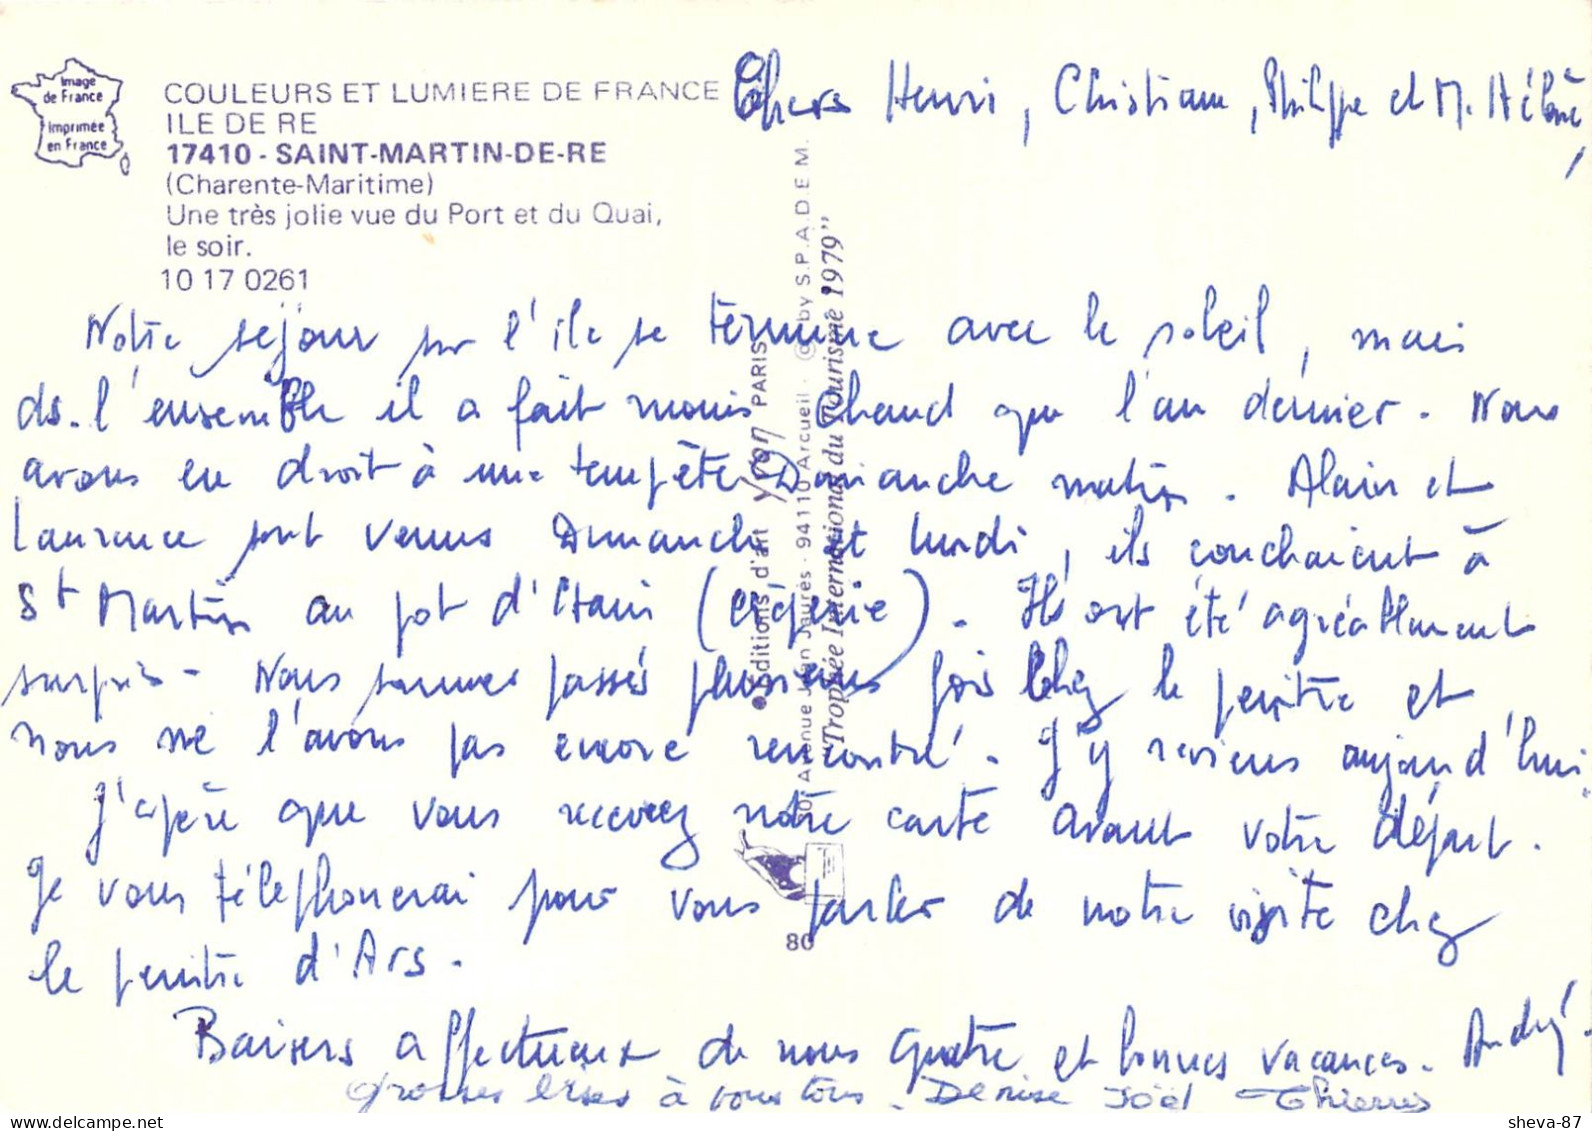 Image
de France
Imprimée
en France
COULEURS ET LUMIERE DE FRANCE
ILE DE RE
17410 - SAINT-MARTIN-DE-RE
(Charente-Maritime)
Une très jolie vue du Port et du Quai,
le soir.
10 17 0261
Chers Henri, Christiane, Philippe et M. Hélène,
Notre séjour sur l'île se termine avec le soleil, mais
ds. l'ensemble il a fait moins chaud que l'an dernier. Nous
avons eu droit à une tempête Dimanche matin. Alain et
Laurence sont venus Dimanche et lundi, ils couchaient à
St Martin au pot d'Etain (crêperie). Ils ont été agréablement
surpris. Nous sommes passés plusieurs fois chez le peintre et
nous ne l'avons pas encore rencontré. J'y reviens aujourd'hui.
J'espère que vous recevrez notre carte avant votre départ.
Je vous téléphonerai pour vous parler de notre visite chez
le peintre d'Ars.
Baisers affectueux de nous quatre et bonnes vacances. André.
Grosses bises à vous tous. Denise Joël Thierry
Editions d'art Yvon PARIS
Avenue Jean Jaurès - 94110 Arcueil - © by S.P.A.D.E.M.
"Trophée International du Tourisme 1979"
80
sheva-87